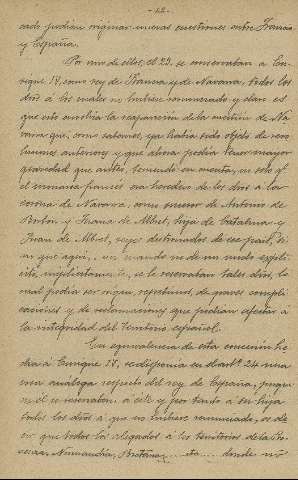 - 12 -
cado podían originar nuevas cuestiones entre Francia
y España.
Por uno de ellos, el 23, se conservaban a En-
rique IV, como rey de Francia y de Navarra, todos los
dros á los cuales no hubiese renunciado y claro es
que esto envolvía la reaparición de la cuestión de Na-
varra que, como sabemos, ya había sido objeto de reso-
luciones anteriores y que ahora podía tener mayor
gravedad que antes, teniendo en cuenta, no solo q.e
el monarca francés era heredero de los dros a la
corona de Navarra, como sucesor de Antonio de
Borbón y Juana de Albret, hija de Catalina y
Juan de Albret, reyes destronados de ese país, si-
no que aquí, aun cuando no de un modo explí-
cito, implícitamente, se le reservaban tales dros, lo
cual podía ser origen, repetimos, de graves compli
caciones y de reclamaciones que podrían afectar á
la integridad del territorio español.
En equivalencia de esta concesión he-
cha á Enrique IV, se disponía en el art.º 24 una
cosa análoga respecto del rey de España, pues
en él se reservaban á éste y por tanto a su hija
todos los dros á que no hubiese renunciado, es de-
cir que todos los alegados a los territorios de la
Normandía, Bretaña, etc. donde no